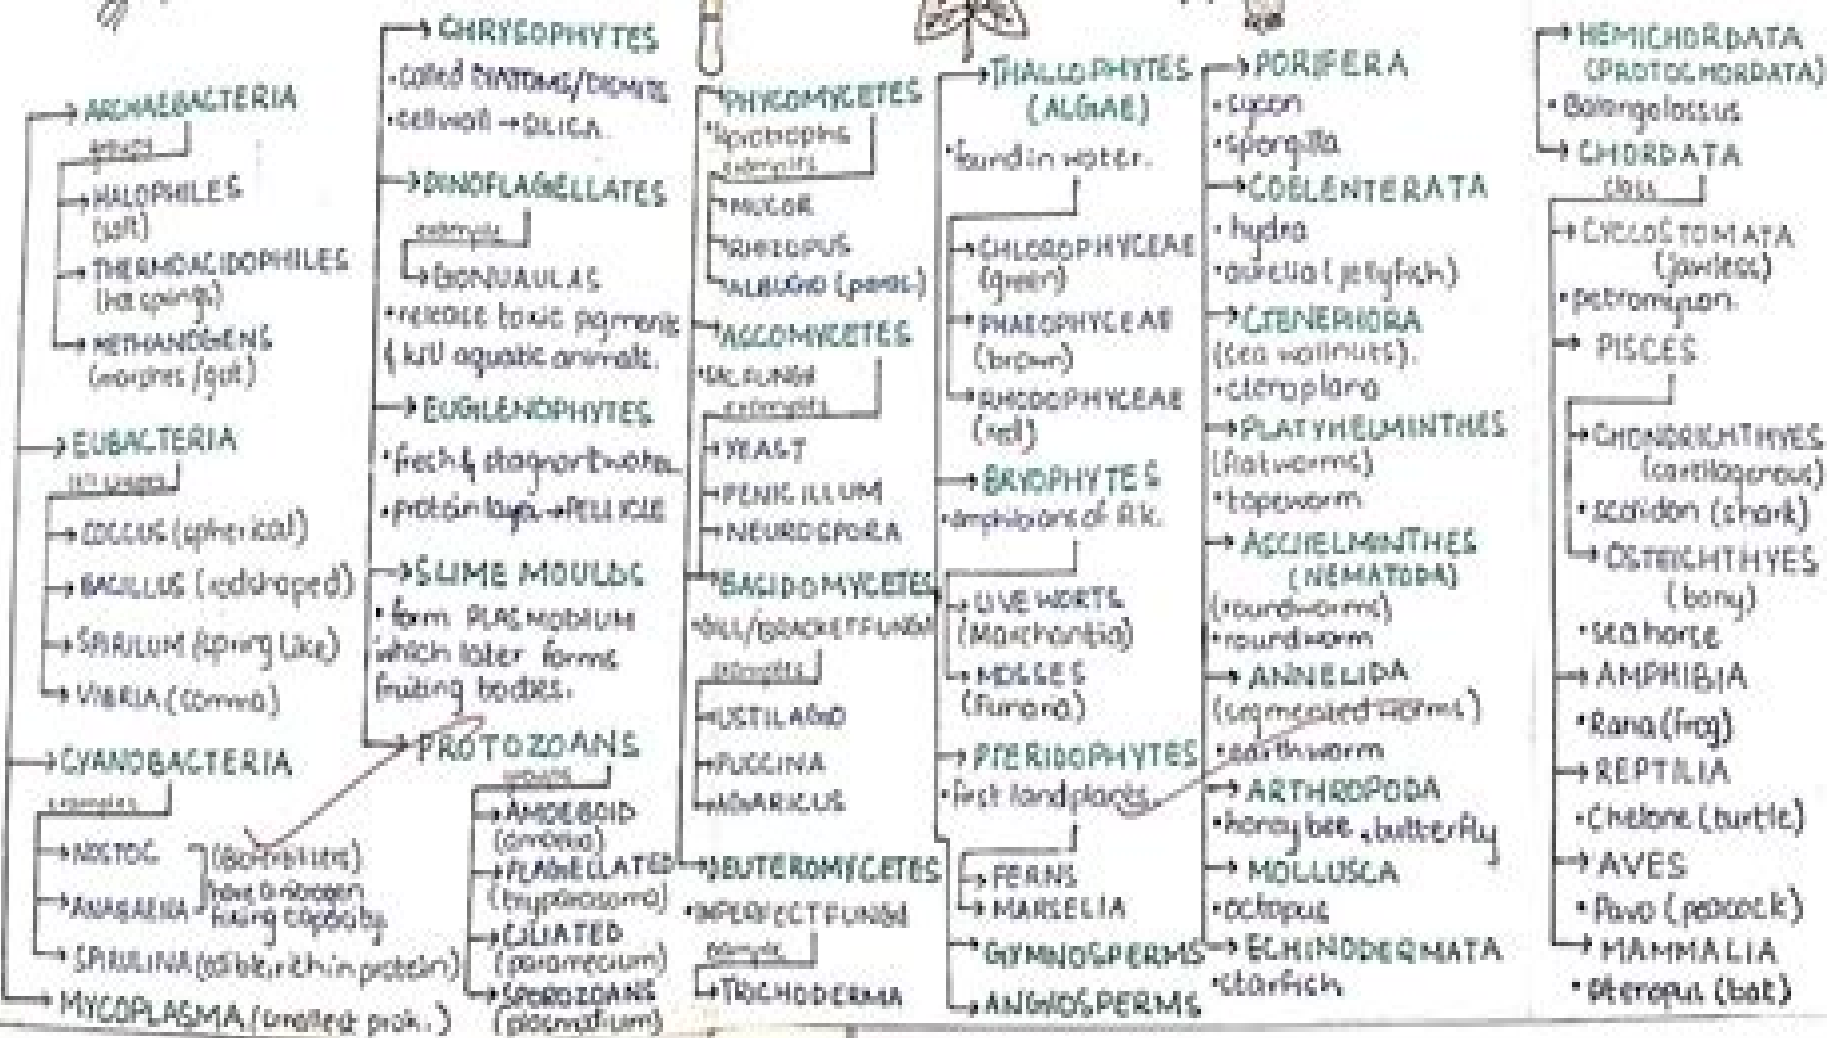 ARCHAEBACTERIA
groups
HALOPHILES
(salt)
THERMOACIDOPHILES
(hot springs)
METHANOGENS
(marshes/gut)
EUBACTERIA
COCCUS (spherical)
BACILLUS (rodshaped)
SPIRILUM (spring like)
VIBRIA (comma)
CYANOBACTERIA
examples
NOSTOC
ANABAENA
have a nitrogen
fixing capacity
SPIRULINA (edible, rich in protein)
MYCOPLASMA (smallest prok.)
CHRYSOPHYTES
•called DIATOMS/DESMITS
•cellwall → SILICA
DINOFLAGELLATES
example
GONUAULAS
•release toxic pigments
& kill aquatic animals.
EUGLENOPHYTES
•fresh & stagnant water
•protein layer → PELLICLE
SLIME MOULDS
•form PLASMODIUM
which later forms
fruiting bodies.
PROTOZOANS
groups
AMOEBOID
(amoeba)
FLAGELLATED
(tryparosoma)
CILIATED
(paramecium)
SPOROZOANS
(plasmodium)
PHYCOMYCETES
examples
MUCOR
RHIZOPUS
ALBUGO (paras.)
ASCOMYCETES
•SAC FUNGI
examples
YEAST
PENICILLUM
NEUROSPORA
BASIDOMYCETES
•GILL/BRACKET FUNGI
examples
USTILAGO
PUCCINA
AGARICUS
DEUTEROMYCETES
•IMPERFECT FUNGI
example
TRICHODERMA
THALLOPHYTES
(ALGAE)
•found in water.
CHLOROPHYCEAE
(green)
PHAEOPHYCEAE
(brown)
RHODOPHYCEAE
(red)
BRYOPHYTES
•amphibians of P.k.
LIVEWORTS
(Marchantia)
MOSSES
(Funaria)
PTERIDOPHYTES
•first land plants.
FERNS
MARSELIA
GYMNOSPERMS
ANGIOSPERMS
PORIFERA
•sycon
•spongilla
COELENTERATA
•hydra
•aurelia (jellyfish)
CTENEPHORA
(sea wallnuts).
•cteroplana
PLATYHELMINTHES
(flatworms)
•tapeworm
ASCHELMINTHES
(NEMATODA)
(roundworms)
•roundworm
ANNELIDA
(segmented worms)
•earthworm
ARTHROPODA
•honey bee, butterfly
MOLLUSCA
•octopus
ECHINODERMATA
•starfish
HEMICHORDATA
(PROTOCHORDATA)
•Balangolossus
CHORDATA
class
CYCLOSTOMATA
(jawless)
•petromyzon
PISCES
CHONDRICHTHYES
(cartilagenous)
•scoridon (shark)
OSTEICHTHYES
(bony)
•seahorse
AMPHIBIA
•Rana (frog)
REPTILIA
•Chelone (turtle)
AVES
•Pavo (peacock)
MAMMALIA
•Pteropus (bat)